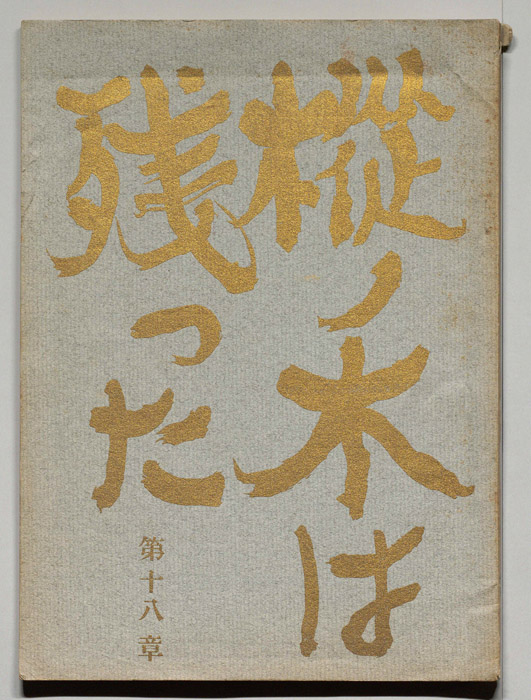 樅ノ木は
残った
第十八章